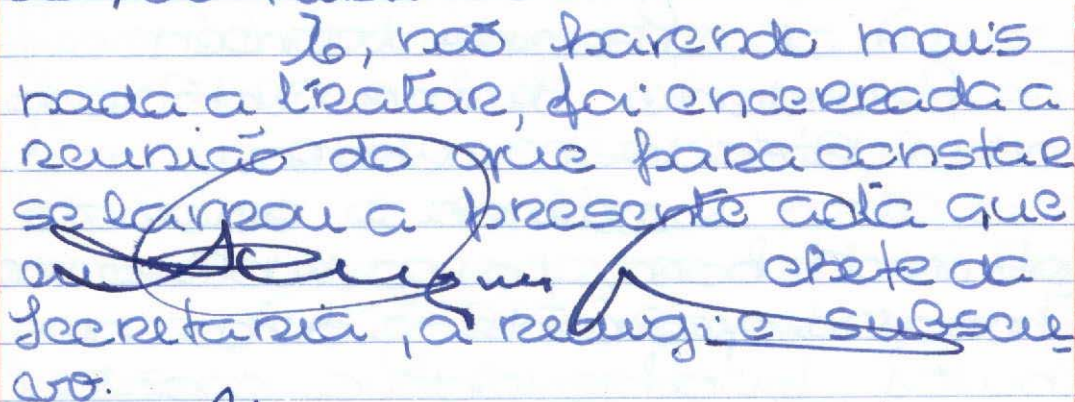 E, não havendo mais
nada a tratar, foi encerrada a
reunião do que para constar
se lavrou a presente acta que
eu chefe da
Secretaria, a redigi e subscre
vo.